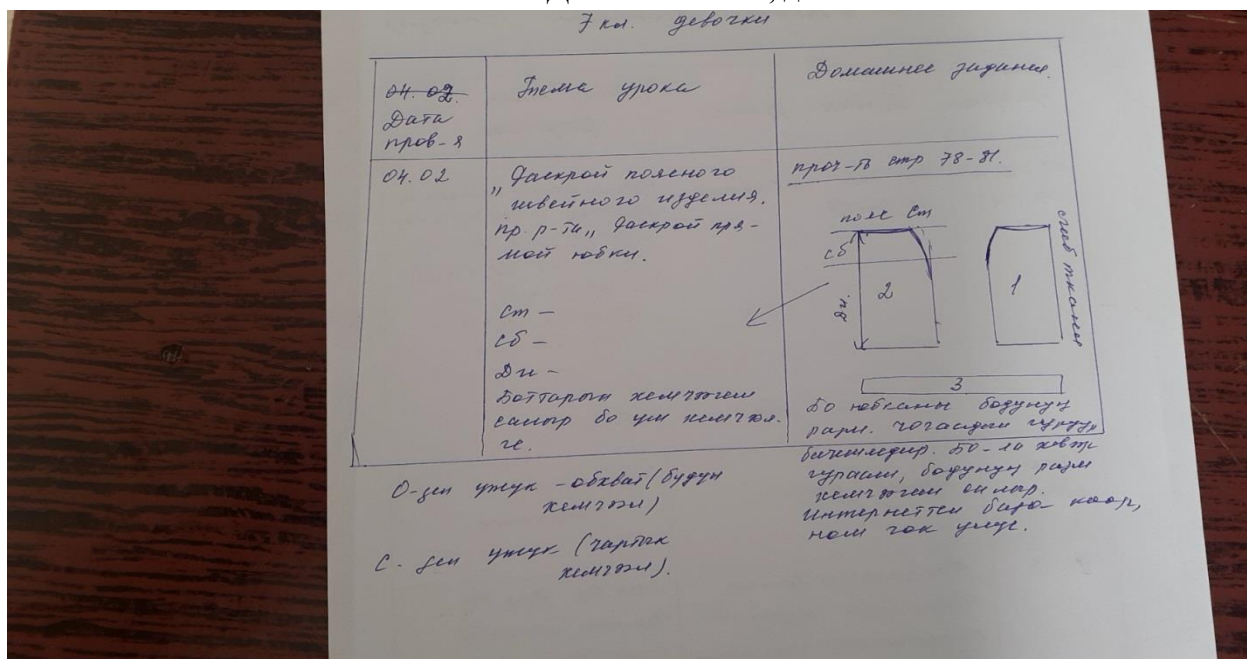 7 кл. девочки
04.02.
Дата
пров-я
Тема урока
Домашнее задание.
04.02
„Раскрой поясного
швейного изделия.
пр. р-та „Раскрой пря-
мой юбки.
Ст –
Сб –
Ди –
Боттарын хемчээлгем
салыр бо ул хемчээл-
ге.
проч-ть стр 78-81.
пояс Ст
сб
Ди.
2
1
сгиб ткани
3
Бо юбканы бодунуң
разм.
бичиледир. Бо-ла хевээр
бодунуң разм
Интернеттен база көөр,
ном чок улус.
О-деп ужук – обхват (бүдүн
хемчээл)
С-деп ужук (чартык
хемчээл).